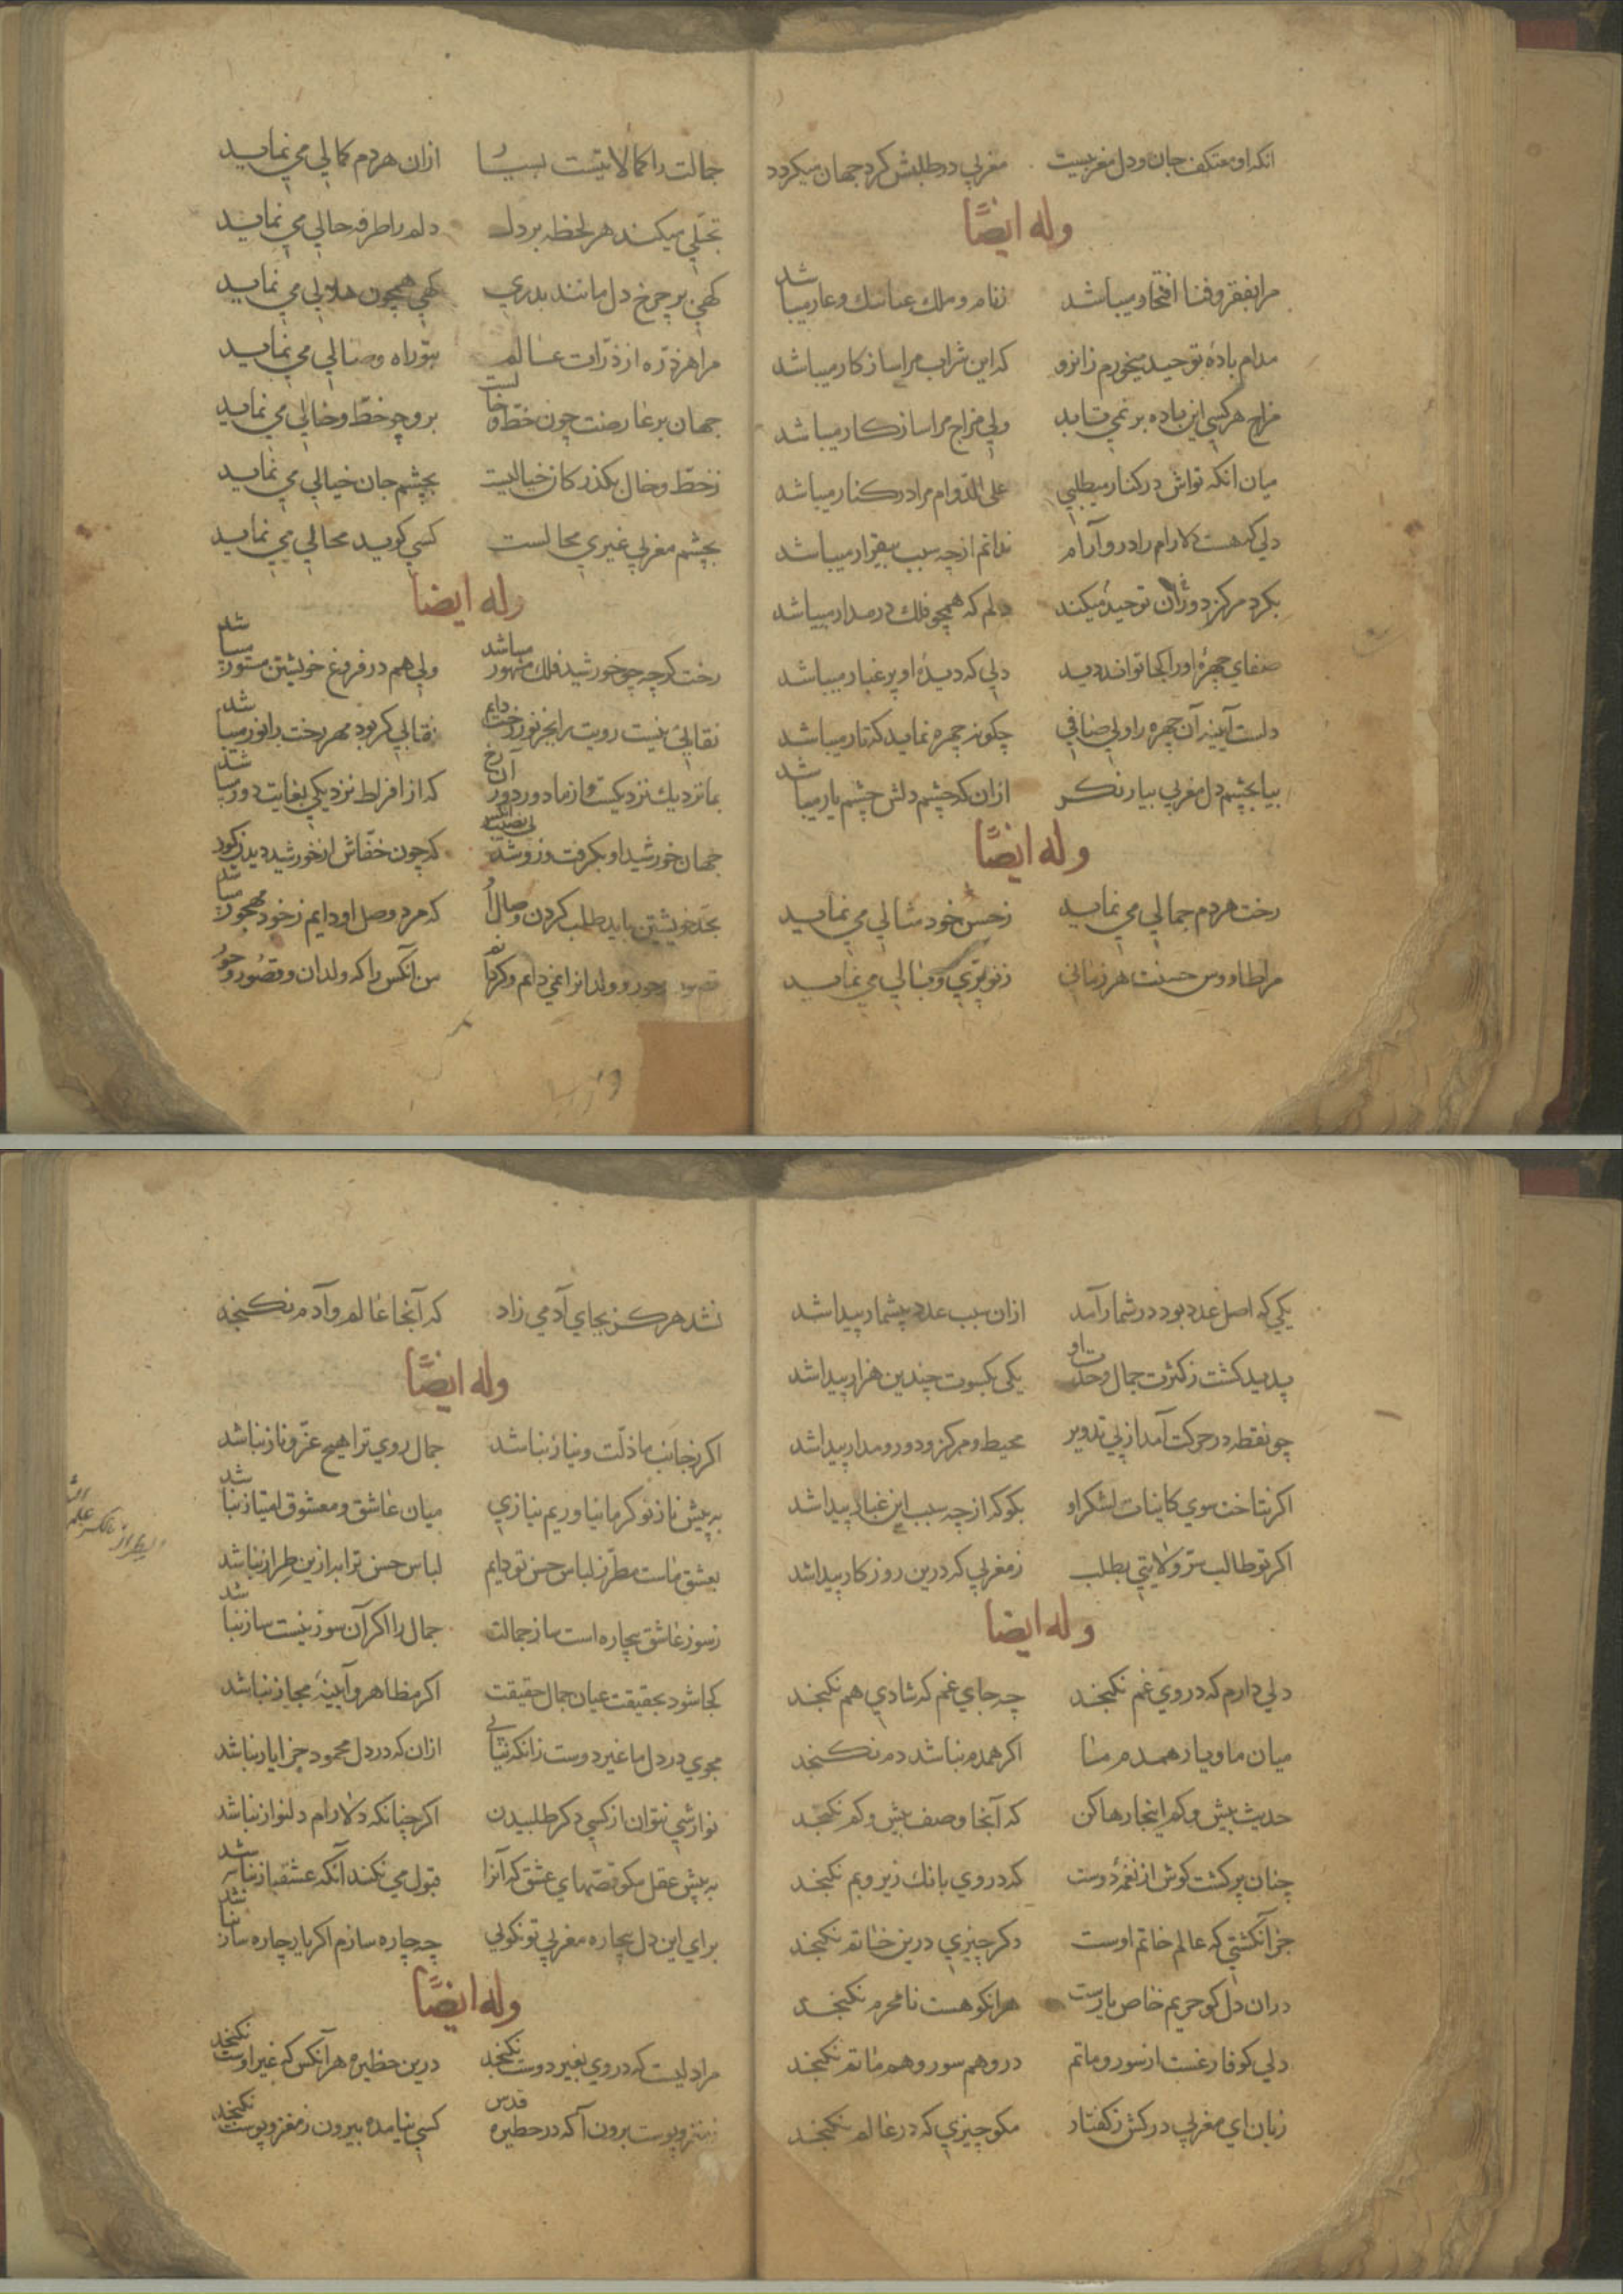 انکه او معتکف جان و دل مغربیست مغربی در طلبش کرد جهان میکردد
وله ایضًا
مرا بفقر و فنا افتخار میباشد ز نام و ملک عنا ننک و عار میباشد
مدام بادۀ توحید میخورم زانرو که این شراب مرا سازکار میباشد
مزاج هر کسی این باده بر نمی تابد ولی مزاج مرا سازکار میباشد
میان انکه تواش در کنار میطلبی علی الدوام مرا در کنار میباشد
دلی که هست دلارام را درو آرام ندانم از چه سبب بیقرار میباشد
بکرد مرکز دوران توحید میکند دلم که همچو فلک در مدار میباشد
صفای چهرۀ او را کجا تواند دید دلی که دیدۀ او پر غبار میباشد
دلست آیینه آن چهره را ولی صافی چکونه چهره نماید که تار میباشد
بیا بچشم دل مغربی بیار نکر ازان که چشم دلش چشم یار میباشد
وله ایضًا
رخت هر دم جمالی می نماید ز حسن خود مثالی می نماید
مرا طاووس حسنت هر زمانی ز نو پرّی و بالی می نماید
جمالت را کمالاتیست بسیار ازان هر دم کمالی می نماید
تجلّی میکند هر لحظه بر دل دلم را طرفه حالی می نماید
کهی بر چرخ دل مانند بدری کهی همچون هلالی می نماید
مرا هر ذرّه از ذرّات عالم بتو راه وصالی می نماید
جهان بر عارضت چون خطّ و خالست برو چو خطّ و خالی می نماید
ز خطّ و خال بکذر کان خیالیست بچشم جان خیالی می نماید
بچشم مغربی غیری محالست کسی کوید محالی می نماید
وله ایضا
رخت کرچه چو خورشید فلک مشهور میباشد ولی هم در فروغ خویشتن مستور میباشد
نقابی نیست رویت را بجز نور رخت دایم نقابی کر بود مهر رخت را نور میباشد
بما نزدیک نزدیکست و از ما دور دور آن رخ که از افراط نزدیکی بغایت دور میباشد
جهان خورشید او بکرفت و زو شد بی نصیب انکس که چون خفّاش از خورشید دیدن کور
بجدّ خویشتن باید طلب کردن وصال او که مرد وصل او دایم ز خود مهجور میباشد
قصور و حور و ولدانرا نمی دانم و کر دانم من آنکس را که ولدان و قصور و حور
یکی که اصل عدد بود در شمار آمد ازان سبب عدد بیشمار پیدا شد
پدید کشت ز کثرت جمال وحدت او یکی بکسوت چندین هزار پیدا شد
چو نقطه در حرکت آمد از پی تدویر محیط و مرکز و دور و مدار پیدا شد
اکر نتاخت سوی کاینات لشکر او بکو که از چه سبب این غبار پیدا شد
اکر تو طالب سرّ ولایتی بطلب ز مغربی که درین روزکار پیدا شد
وله ایضا
دلی دارم که در وی غم نکنجد چه جای غم که شادی هم نکنجد
میان ما و یار همدم ما اکر همدم نباشد دم نکنجد
حدیث بیش و کم اینجا رها کن که آنجا وصف بیش و کم نکنجد
چنان پر کشت کوش از نغمۀ دوست که در وی بانک زیر و بم نکنجد
جز آنکشتی که عالم خاتم اوست دکر چیزی درین خاتم نکنجد
دران دل کو حریم خاص یارست هرانکو هست نامحرم نکنجد
دلی کو فارغست از سور و ماتم درو هم سور و هم ماتم نکنجد
زبان ای مغربی درکش ز کفتار مکو چیزی که در عالم نکنجد
نشد هرکز بجای آدمی زاد که آنجا عالم و آدم نکنجد
وله ایضًا
اکر ز جانب ما ذلّت و نیاز نباشد جمال روی ترا هیچ عزّ و ناز نباشد
به پیش ناز تو کر ما نیاوریم نیازی میان عاشق و معشوق امتیاز نباشد
بعشق ماست مطرّز لباس حسن تو دایم لباس حسن ترا به ازین طراز نباشد
ز سوز عاشق بیچاره است ساز جمالت جمال را اکر آن سوز نیست ساز نباشد
کجا شود بحقیقت عیان جمال حقیقت اکر مظاهر و آیینۀ مجاز نباشد
مجوی در دل ما غیر دوست زانکه نیابی ازان که در دل محمود جز ایاز نباشد
نوازشی نتوان از کسی دکر طلبیدن اکر چنانکه دلارام دلنواز نباشد
به پیش عقل مکو قصّهای عشق که آنرا قبول می نکند آنکه عشقباز نباشد
برای این دل بیچاره مغربی تو نکوئی چه چاره سازم اکر یار چاره ساز نباشد
وله ایضًا
مرا دلیست که در وی بغیر دوست نکنجد درین حظیره هر آنکس که غیر اوست نکنجد
ز مغز و پوست برون آ که در حظیره قدس کسی نیامده بیرون ز مغز و پوست نکنجد